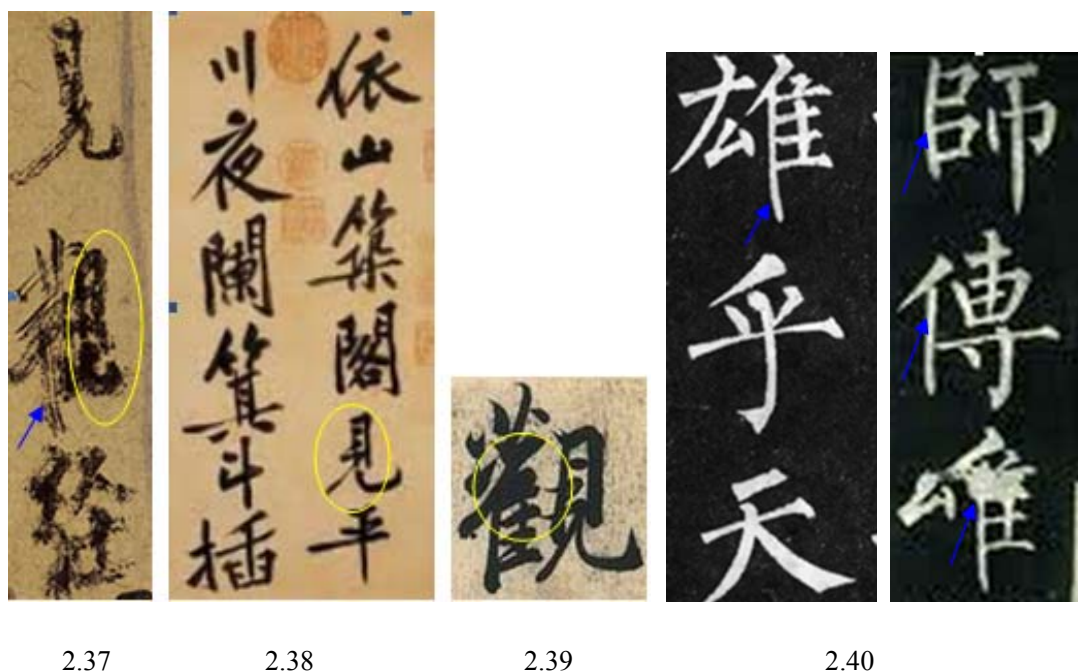 見觀
依山築閣見平
川夜闌箕斗插
觀
雄乎天
師傅
2.37 2.38 2.39 2.40